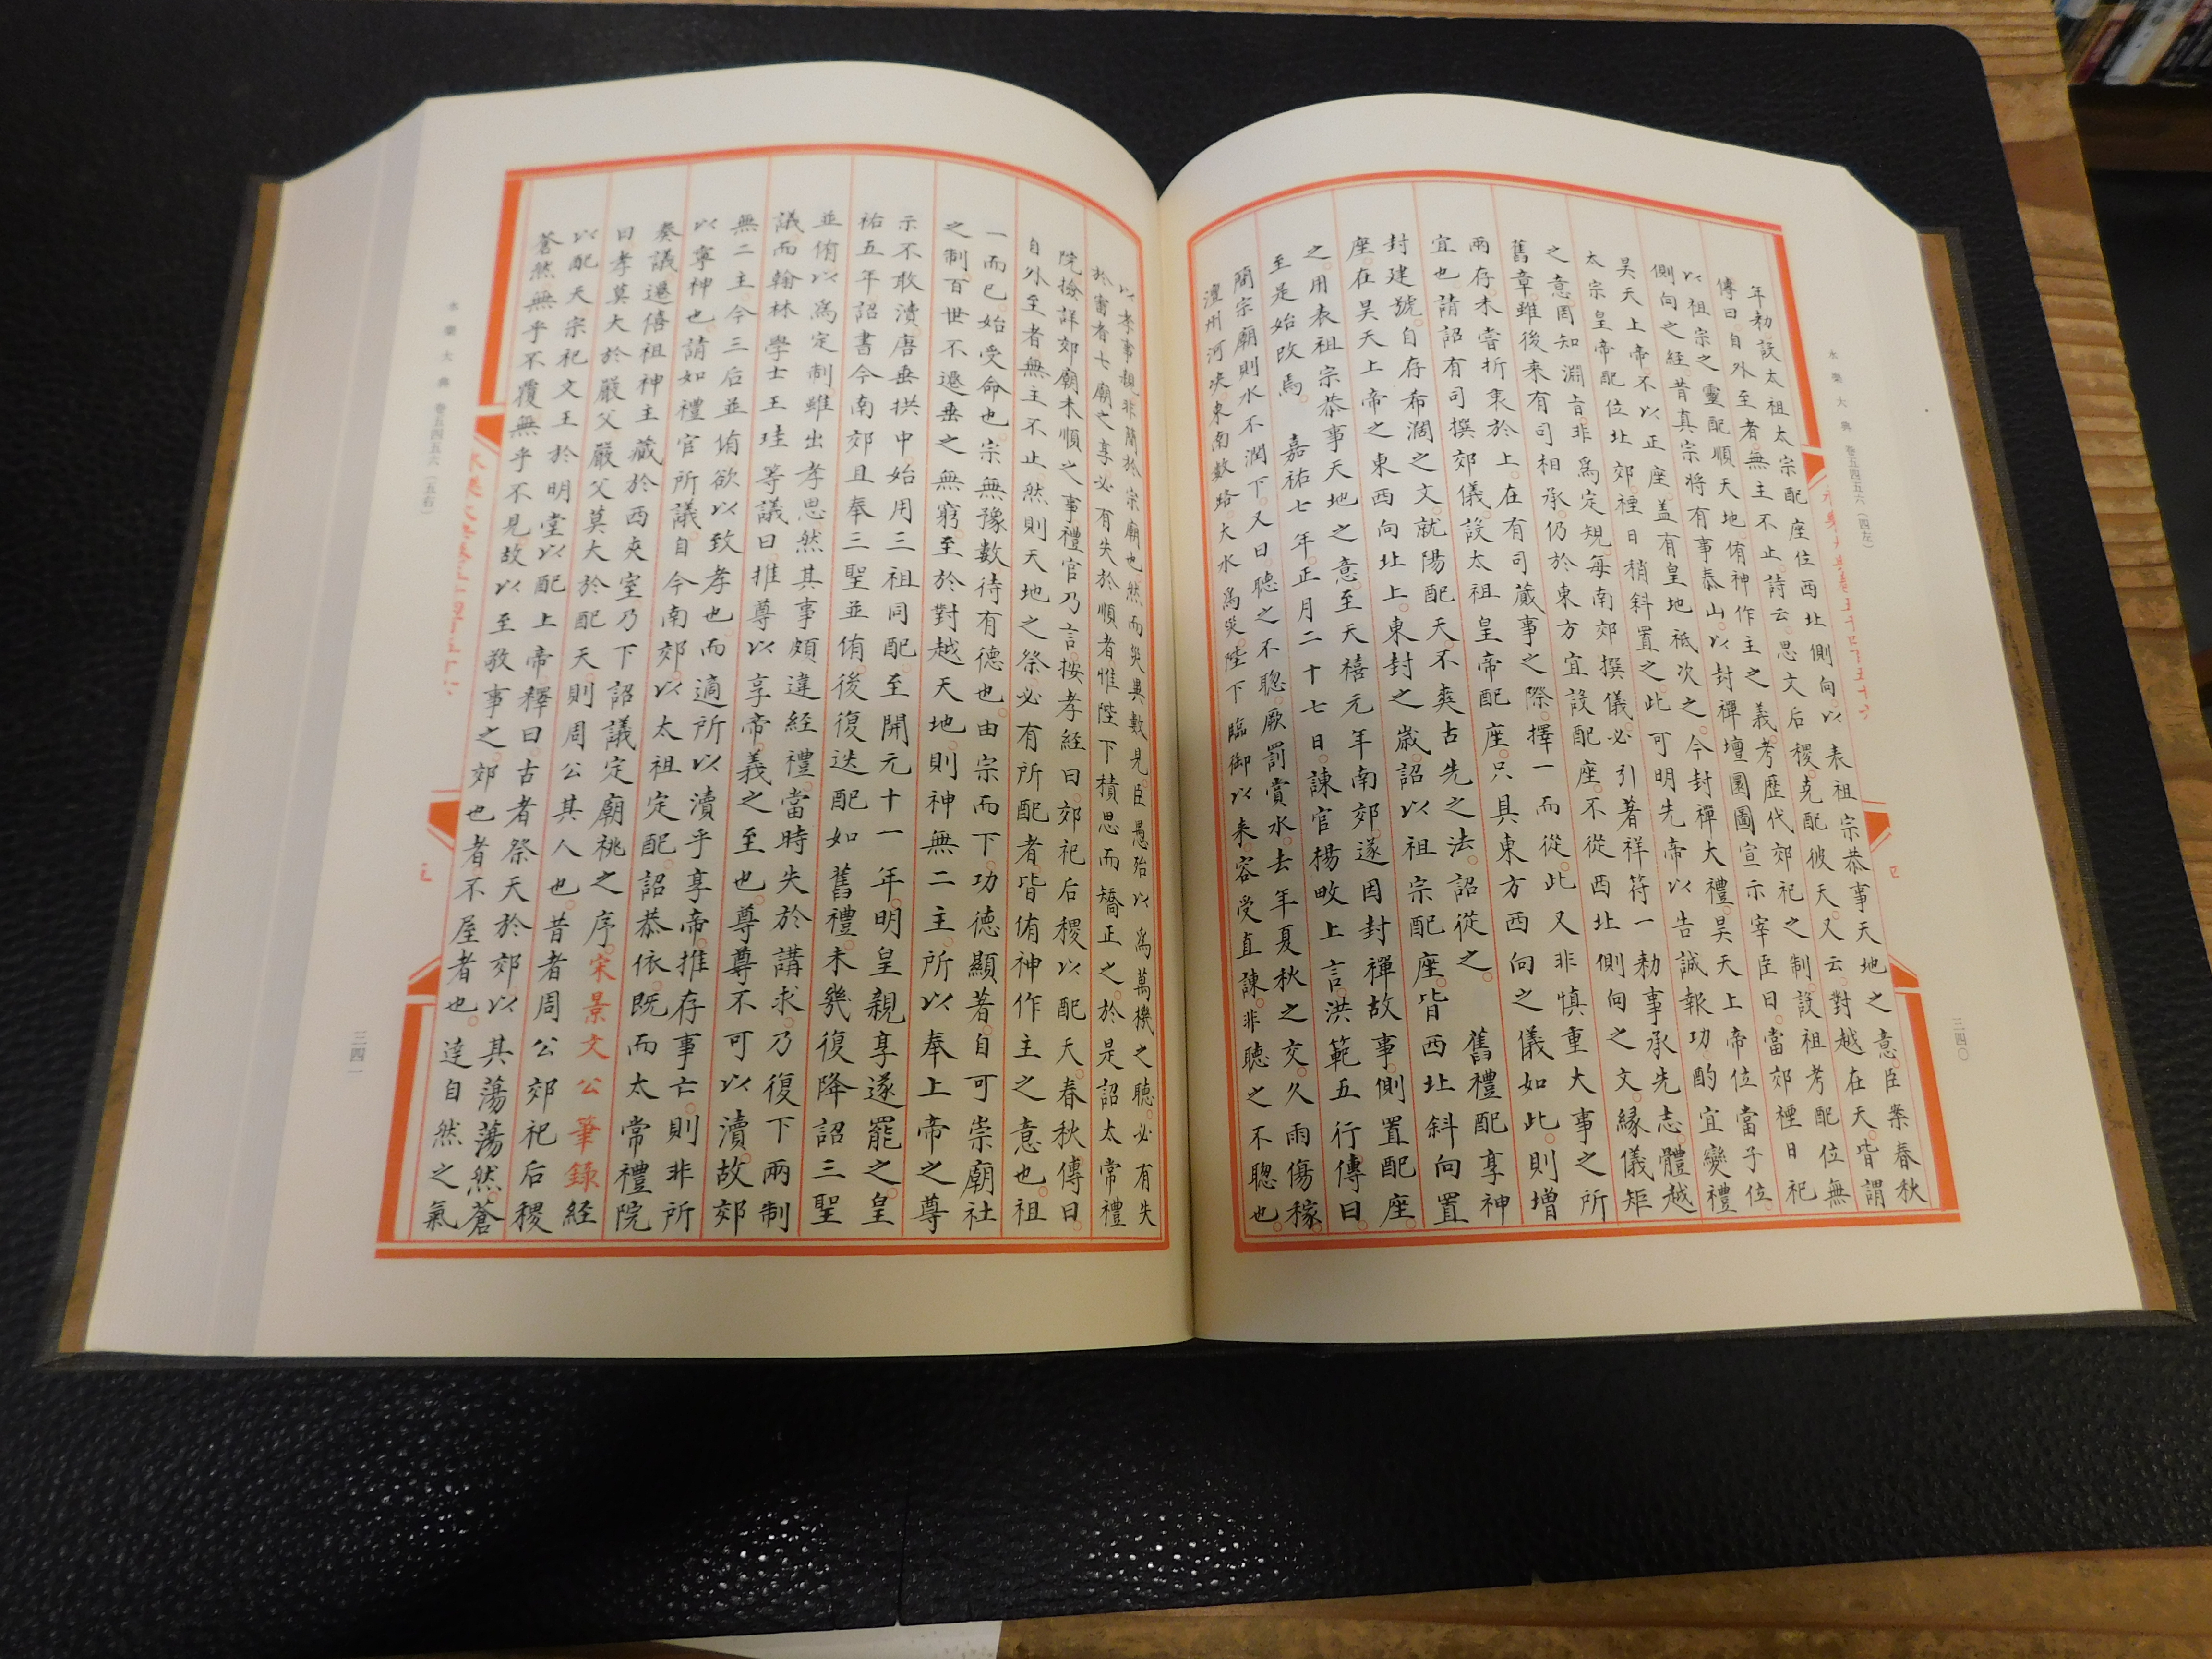 永樂大典 卷五四五六(四左)
年勅設太祖太宗配座位西北側向以表祖宗恭事天地之意臣案春秋
傳曰自外至者無主不止詩云思文后稷克配彼天又云對越在天皆謂
以祖宗之靈配順天地侑神作主之義考歷代郊祀之制設祖考配位無
側向之經昔真宗將有事泰山以封禪壇圜圖宣示宰臣曰當郊禋日祀
昊天上帝不以正座蓋有皇地祇次之今封禪大禮昊天上帝位當子位
太宗皇帝配位北郊禋日稍斜置之此可明先帝以告誠報功酌宜變禮
之意固知淵旨非為定規每南郊撰儀必引著祥符一勅事承先志體越
舊章雖後来有司相承仍於東方宜設配座不從西北側向之文緣儀矩
兩存未嘗折衷於上在有司蕆事之際擇一而從此又非慎重大事之所
宜也請詔有司撰郊儀設太祖皇帝配座只具東方西向之儀如此則增
封建號自存希濶之文就陽配天不爽古先之法詔從之 舊禮配享神
座在昊天上帝之東西向北上東封之歲詔以祖宗配座皆西北斜向置
之用表祖宗恭事天地之意至天禧元年南郊遂因封禪故事側置配座
至是始改焉 嘉祐七年正月二十七日諫官楊畋上言洪範五行傳曰
簡宗廟則水不潤下又曰聽之不聰厥罰賞水去年夏秋之交久雨傷稼
澶州河决東南數路大水為災陛下臨御以来容受直諫非聽之不聰也
三四〇
以孝事親非簡於宗廟也然而災異數見臣愚殆以為萬機之聽必有失
於審者七廟之享必有失於順者惟陛下積思而矯正之於是詔太常禮
院檢詳郊廟未順之事禮官乃言按孝經曰郊祀后稷以配天春秋傳曰
自外至者無主不止然則天地之祭必有所配者皆侑神作主之意也祖
一而已始受命也宗無豫數待有德也由宗而下功徳顯著自可崇廟社
之制百世不遷垂之無窮至於對越天地則神無二主所以奉上帝之尊
示不敢瀆唐垂拱中始用三祖同配至開元十一年明皇親享遂罷之皇
祐五年詔書今南郊且奉三聖並侑後復迭配如舊禮未幾復降詔三聖
並侑以為定制雖出孝思然其事頗違經禮當時失於講求乃復下兩制
議而翰林學士王珪等議曰推尊以享帝義之至也尊尊不可以瀆故郊
無二主今三后並侑欲以致孝也而適所以瀆乎享帝推存事亡則非所
以寧神也請如禮官所議自今南郊以太祖定配詔恭依既而太常禮院
奏議遷僖祖神主藏於西夾室乃下詔議定廟祧之序宋景文公筆錄経
曰孝莫大於嚴父嚴父莫大於配天則周公其人也昔者周公郊祀后稷
以配天宗祀文王於明堂以配上帝釋曰古者祭天於郊以其蕩蕩然蒼
蒼然無乎不覆無乎不見故以至敬事之郊也者不屋者也達自然之氣
永樂大典 卷五四五六(五右)
三四一